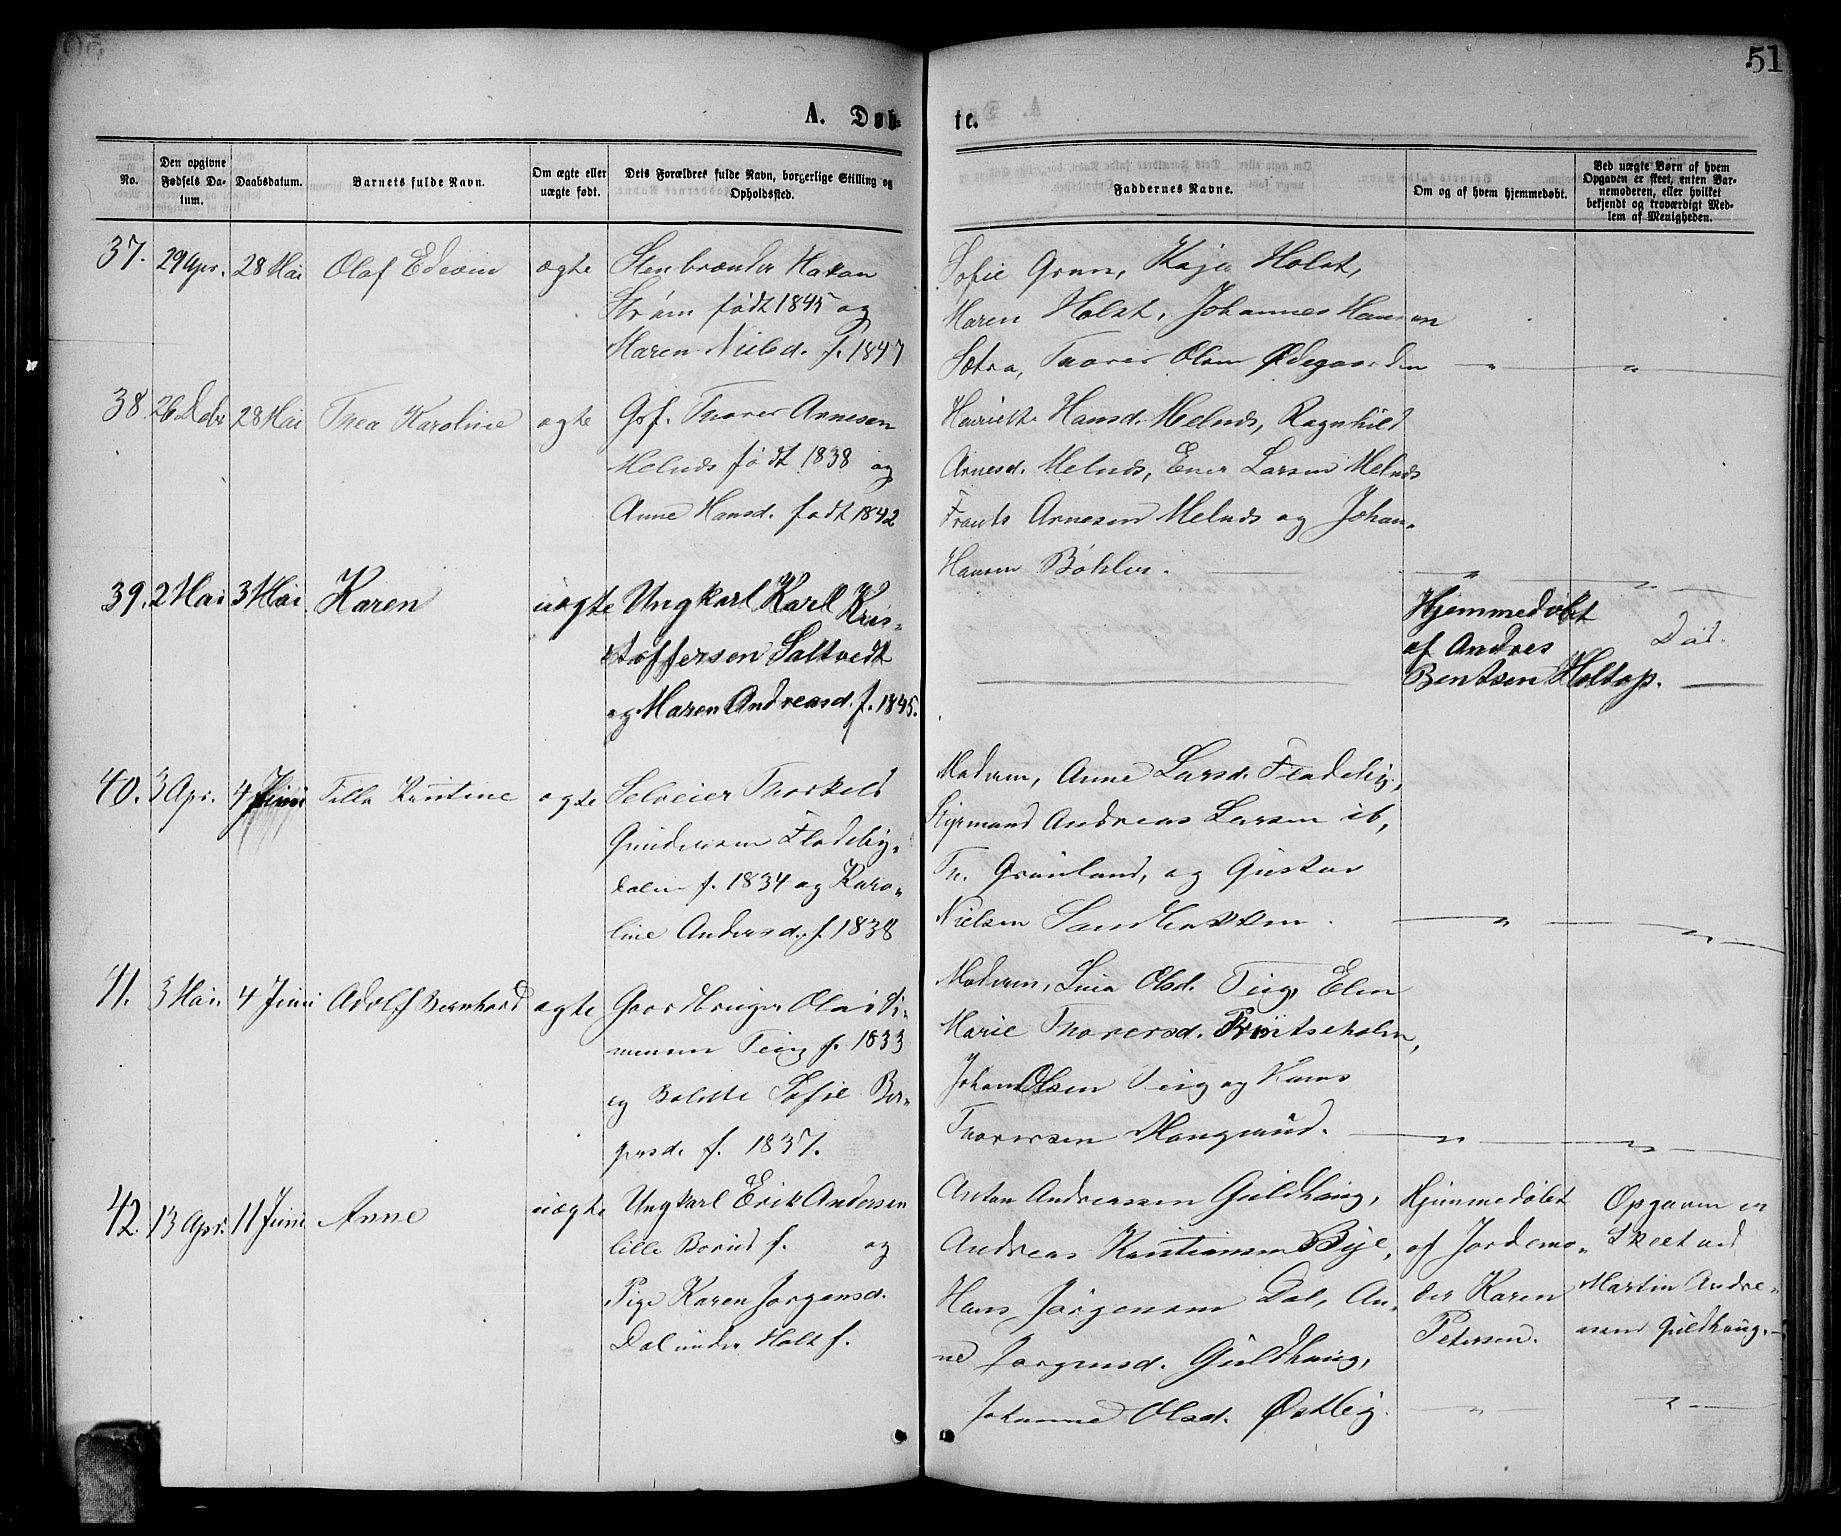 51
A. Døb-
te.
No.
Den opgivne
Fødsels Da-
tum.
Daabsdatum.
Barnets fulde Navn.
Om ægte eller
uægte født.
Dets Forældres fulde Navn, borgerlige Stilling og
Opholdssted.
Faddernes Navne.
Om og af hvem hjemmedøbt.
Ved uægte Børn af hvem
Opgaven er skeet, enten Bar-
nemoderen, eller hvilket
bekjendt og troværdigt Med-
lem af Menigheden.
37. 29 Apr. 28 Mai Olaf Edevin ægte
Stenbrænder Hakan
Strøm født 1845 og
Maren Nielsd. f. 1847
Sofie Gran, Kaja Holst,
Maren Holst, Johannes Hansen
Sætra, Thorer Olsen Ødegaarden
38. 26 Debr 28 Mai Thea Karoline ægte
Gsf. Thorer Arnesen
Melnds født 1838 og
Anne Hansd. født 1842
Henriette Hansd. Melnds, Ragnhild
Arnesd. Melnds, Ener Larsen Melnds
Frants Arnesen Melnds og Johan
Hansen Bøhler.
39. 2 Mai 3 Mai Karen uægte
Ungkarl Karl Kris-
stoffersen Saltvedt
og Maren Andreasd. f. 1845.
Hjemmedøbt
af Andres
Bentsen Holtop.
Død.
40. 3 Apr. 4 Juni Tilla Kristine ægte
Selveier Thorkeld
Gundersen Fladeby-
dalen f. 1834 og Karo-
line Andersd. f. 1838
Modren, Anne Larsd. Fladeby,
Styrmand Andreas Larsen ib,
Th. Grønland, og Gustav
Nielsen Sandbakken.
41. 3 Mai. 4 Juni Adolf Bernhard ægte
Gaardbruger Olai Si-
mensen Teig f. 1833
og Bolette Sofie Ber-
gersd. f. 1837.
Modren, Lina Olsd. Teig, Elen
Marie Thorersd. Prøitseholm,
Johan Olsen Teig og Hans
Thorersen Haugerud.
42. 13 Apr. 11 Juni Anne uægte
Ungkarl Erik Andersen
lille Borud f. og
Pige Karen Jørgensd.
Dal under Holt f.
Anton Andreassen Guldhaug,
Andreas Kristiansen Bye,
Hans Jørgensen Dal, An-
ne Jørgensd. Guldhaug,
Johanne Olsd. Østby.
Hjemmedøbt
af Jordemo-
der Karen
Petersen.
Opgaven er
skeet ved
Martin Andre-
asen Guldhaug.